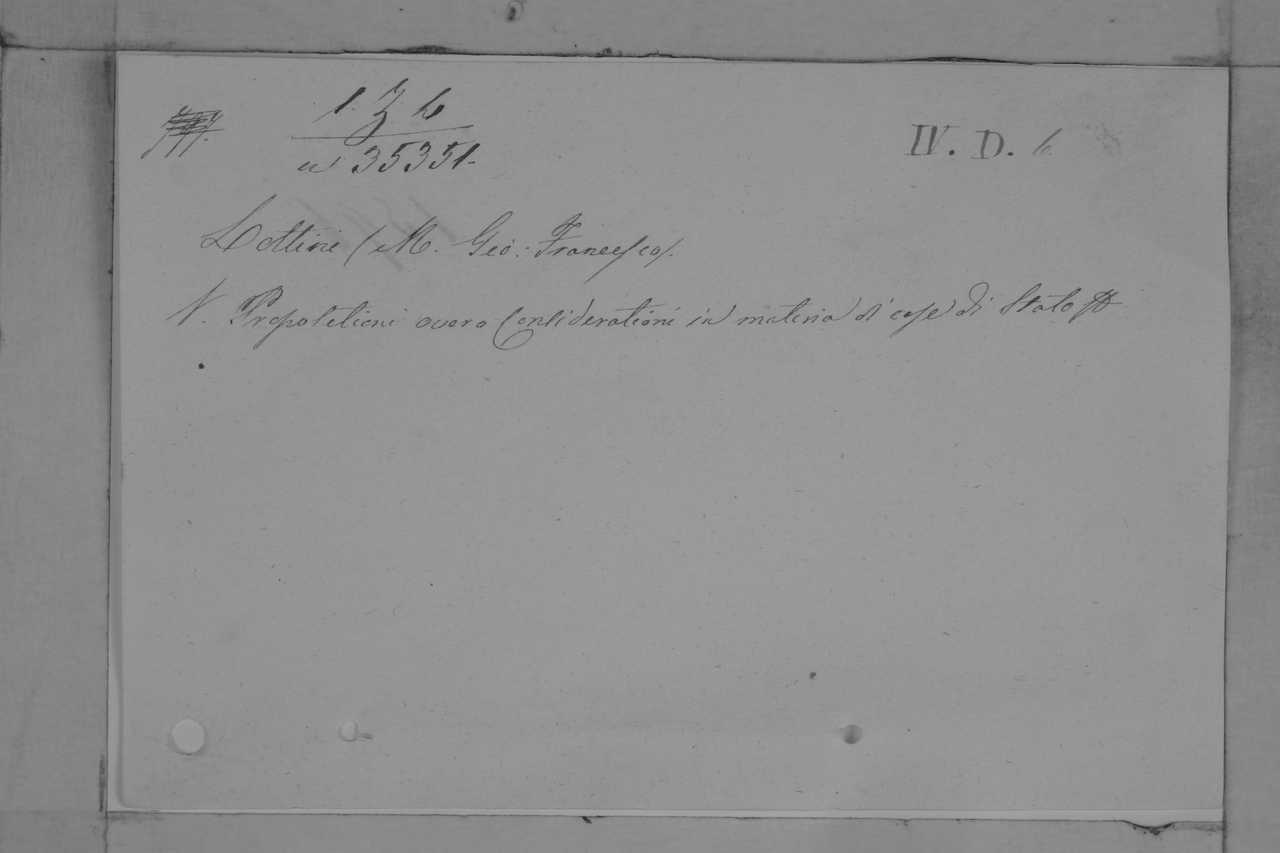 1. Z. b IV. D. 6
in 35351.
Lottini (M. Gio: Francesco).
V. Propositioni overo Considerationi in materia di cose di Stato